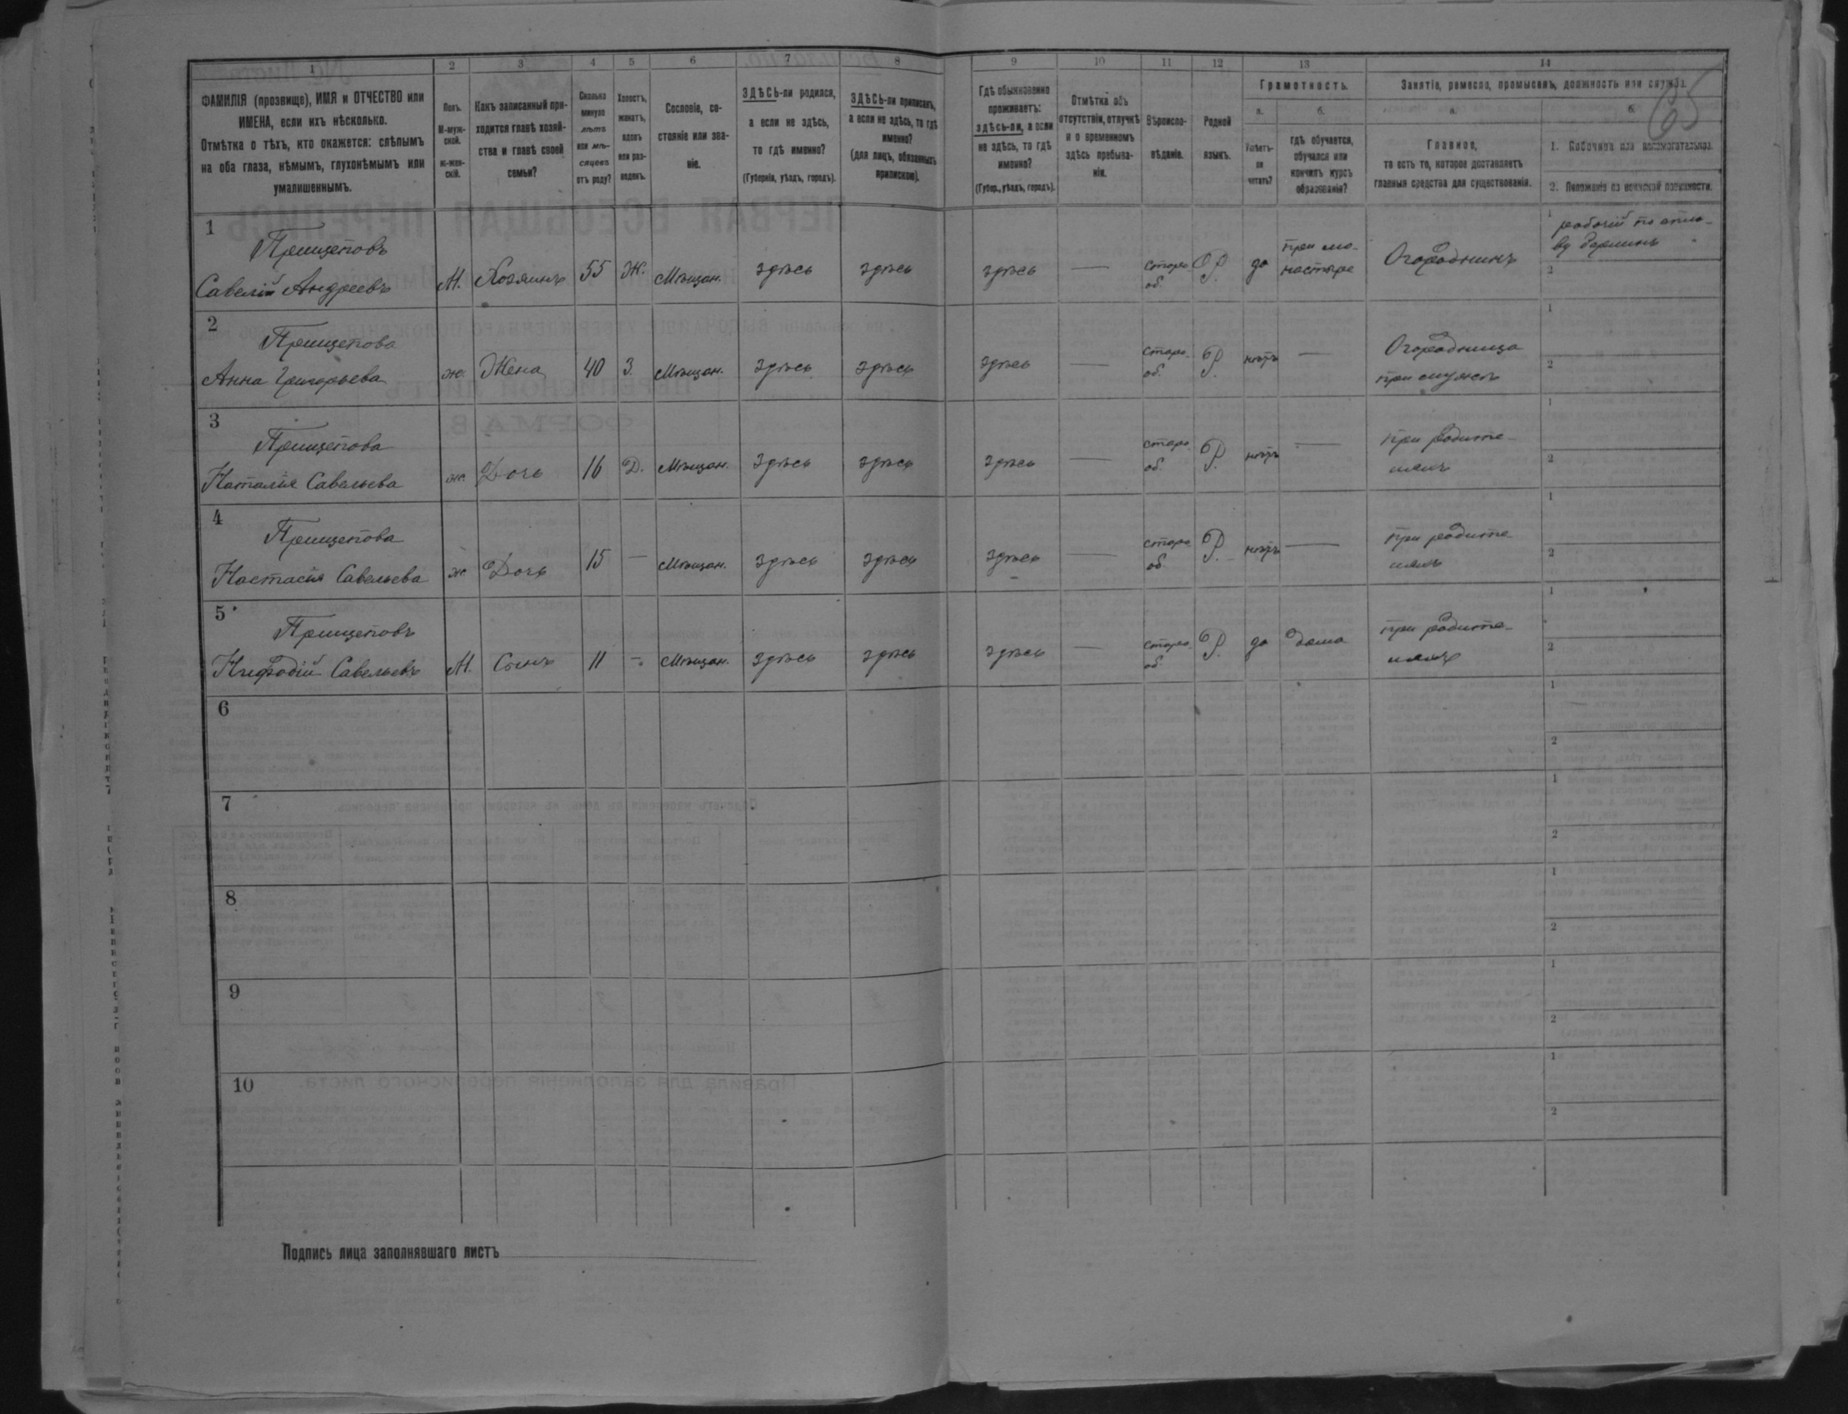 1
2
3
4
5
6
7
8
9
10
11
12
13
14
65
ФАМИЛІЯ (прозвище), ИМЯ и ОТЧЕСТВО или
ИМЕНА, если ихъ нѣсколько.
Отмѣтка о тѣхъ, кто окажется: слѣпымъ
на оба глаза, нѣмымъ, глухонѣмымъ или
умалишеннымъ.
Полъ.
М-муж-
ской.
ж-жен-
скій.
Какъ записанный при-
ходится главѣ хозяй-
ства и главѣ своей
семьи?
Сколько
минуло
лѣтъ
или мѣ-
сяцевъ
отъ роду?
Холостъ,
женатъ,
вдовъ
или раз-
веденъ.
Сословіе, со-
стояніе или зва-
ніе.
ЗДѢСЬ-ли родился,
а если не здѣсь,
то гдѣ именно?
(Губернія, уѣздъ, городъ).
ЗДѢСЬ-ли приписанъ,
а если не здѣсь, то гдѣ
именно?
(для лицъ, обязанныхъ
припискою).
Гдѣ обыкновенно
проживаетъ:
здѣсь-ли, а если
не здѣсь, то гдѣ
именно?
(Губер., уѣздъ, городъ).
Отмѣтка объ
отсутствіи, отлучкѣ
и о временномъ
здѣсь пребыва-
ніи.
Вѣроиспо-
вѣданіе.
Родной
языкъ.
Грамотность.
а.
б.
Умѣетъ-
ли
читать?
гдѣ обучается,
обучался или
кончилъ курсъ
образованія?
Занятія, ремесло, промыселъ, должность или служба.
а.
б.
Главное,
то есть то, которое доставляетъ
главныя средства для существованія.
1. Побочное или вспомогательное.
2. Положеніе по воинской повинности.
1
Прищеповъ
Савелій Андреевъ
М.
Хозяинъ
55
Ж.
Мѣщан.
здѣсь
здѣсь
здѣсь
—
старо
об.
Р.
да
при мо-
настыре
Огородникъ
1
рабочій по спла-
ву
2
2
Прищепова
Анна Григорьева
ж.
Жена
40
З.
Мѣщан.
здѣсь
здѣсь
здѣсь
—
старо
об.
Р.
нѣтъ
—
Огородница
при мужѣ
1
2
3
Прищепова
Наталія Савельева
ж.
Дочь
16
Д.
Мѣщан.
здѣсь
здѣсь
здѣсь
—
старо
об.
Р.
нѣтъ
—
при родите-
ляхъ
1
2
4
Прищепова
Настасія Савельева
ж
Дочь
15
—
Мѣщан.
здѣсь
здѣсь
здѣсь
—
старо
об.
Р.
нѣтъ
—
при родите
ляхъ
1
2
5
Прищеповъ
Нифодій Савельевъ
М.
Сынъ
11
—
Мѣщан.
здѣсь
здѣсь
здѣсь
—
старо
об
Р.
да
дома
при родите-
ляхъ
1
2
6
1
2
7
1
2
8
1
2
9
1
2
10
1
2
Подпись лица заполнявшаго листъ